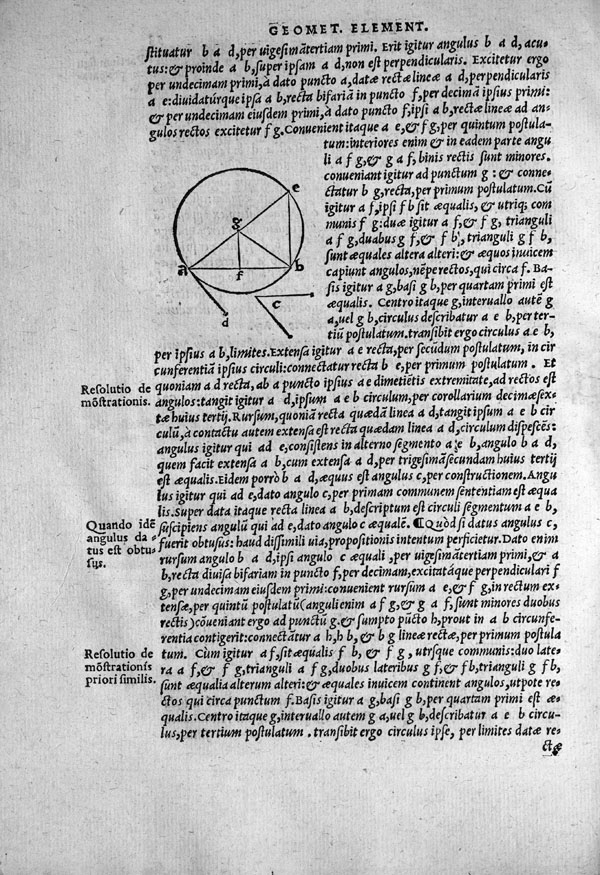 GEOMET. ELEMENT.
stituatur b a d, per uigesimātertiam primi. Erit igitur angulus b a d, acu-
tus: & proinde a b, super ipsam a d, non est perpendicularis. Excitetur ergo
per undecimam primi, à dato puncto a, datæ rectæ lineæ a d, perpendicularis
a e: diuidatúrque ipsa a b, recta bifariā in puncto f, per decimā ipsius primi:
& per undecimam eiusdem primi, à dato puncto f, ipsi a b, rectæ lineæ ad an-
gulos rectos excitetur f g. Conuenient itaque a e, & f g, per quintum postula-
tum: interiores enim & in eadem parte angu
li a f g, & g a f, binis rectis sunt minores.
conueniant igitur ad punctum g: & conne-
ctatur b g, recta, per primum postulatum. Cū
igitur a f, ipsi f b sit æqualis, & utriq; com
munis f g: duæ igitur a f, & f g, trianguli
a f g, duabus g f, & f b, trianguli g f b,
sunt æquales altera alteri: & æquos inuicem
capiunt angulos, nēpe rectos, qui circa f. Ba-
sis igitur a g, basi g b, per quartam primi est
æqualis. Centro itaque g, interuallo autē g
a, uel g b, circulus describatur a e b, per ter-
tiū postulatum. transibit ergo circulus a e b,
per ipsius a b, limites. Extensa igitur a e recta, per secūdum postulatum, in cir
cunferentiā ipsius circuli: connectatur recta b e, per primum postulatum. Et
quoniam a d recta, ab a puncto ipsius a e dimetietis extremitate, ad rectos est
angulos: tangit igitur a d, ipsum a e b circulum, per corollarium decimæsex-
tæ huius tertij. Rursum, quoniā recta quædā linea a d, tangit ipsum a e b cir
culū, à contactu autem extensa est recta quædam linea a b, circulum dispescēs:
angulus igitur qui ad e, consistens in alterno segmento a e b, angulo b a d,
quem facit extensa a b, cum extensa a d, per trigesimāsecundam huius tertij
est æqualis. Eidem porrò b a d, æquus est angulus c, per constructionem. Angu
lus igitur qui ad e, dato angulo c, per primam communem sententiam est æqua
lis. Super data itaque recta linea a b, descriptum est circuli segmentum a e b,
suscipiens angulū qui ad e, dato angulo c æqualē. ¶ Quòd si datus angulus c,
fuerit obtusus: haud dissimili uia, propositionis intentum perficietur. Dato enim
rursum angulo b a d, ipsi angulo c æquali, per uigesimātertiam primi, & a
b, recta diuisa bifariam in puncto f, per decimam, excitatáque perpendiculari f
g, per undecimam eiusdem primi: conuenient rursum a e, & f g, in rectum ex-
tensæ, per quintū postulatū (anguli enim a f g, & g a f, sunt minores duobus
rectis) cōueniant ergo ad punctū g. & sumpto pūcto h, prout in a b circunfe-
rentia contigerit: connectātur a h, h b, & b g lineæ rectæ, per primum postula
tum. Cùm igitur a f, sit æqualis f b, & f g, utrisque communis: duo late-
ra a f, & f g, trianguli a f g, duobus lateribus g f, & f b, trianguli g f b,
sunt æqualia alterum alteri: & æquales inuicem continent angulos, utpote re-
ctos qui circa punctum f. Basis igitur a g, basi g b, per quartam primi est æ-
qualis. Centro itaque g, interuallo autem g a, uel g b, describatur a e b circu-
lus, per tertium postulatum. transibit ergo circulus ipse, per limites datæ re-
ctæ
Resolutio de
mōstrationis.
Quando idē
angulus da-
tus est obtu-
sus.
Resolutio de
mōstrationis
priori similis.
e
g
a
f
b
c
d